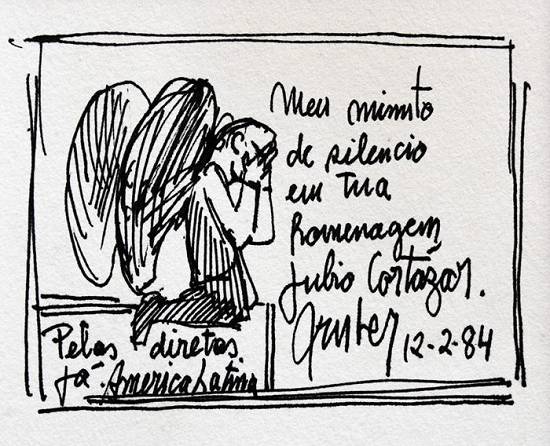 Meu minuto
de silencio
em tua
homenagem
Julio Cortázar.
Gruber 12-2-84
Pelas diretas
já. America Latina